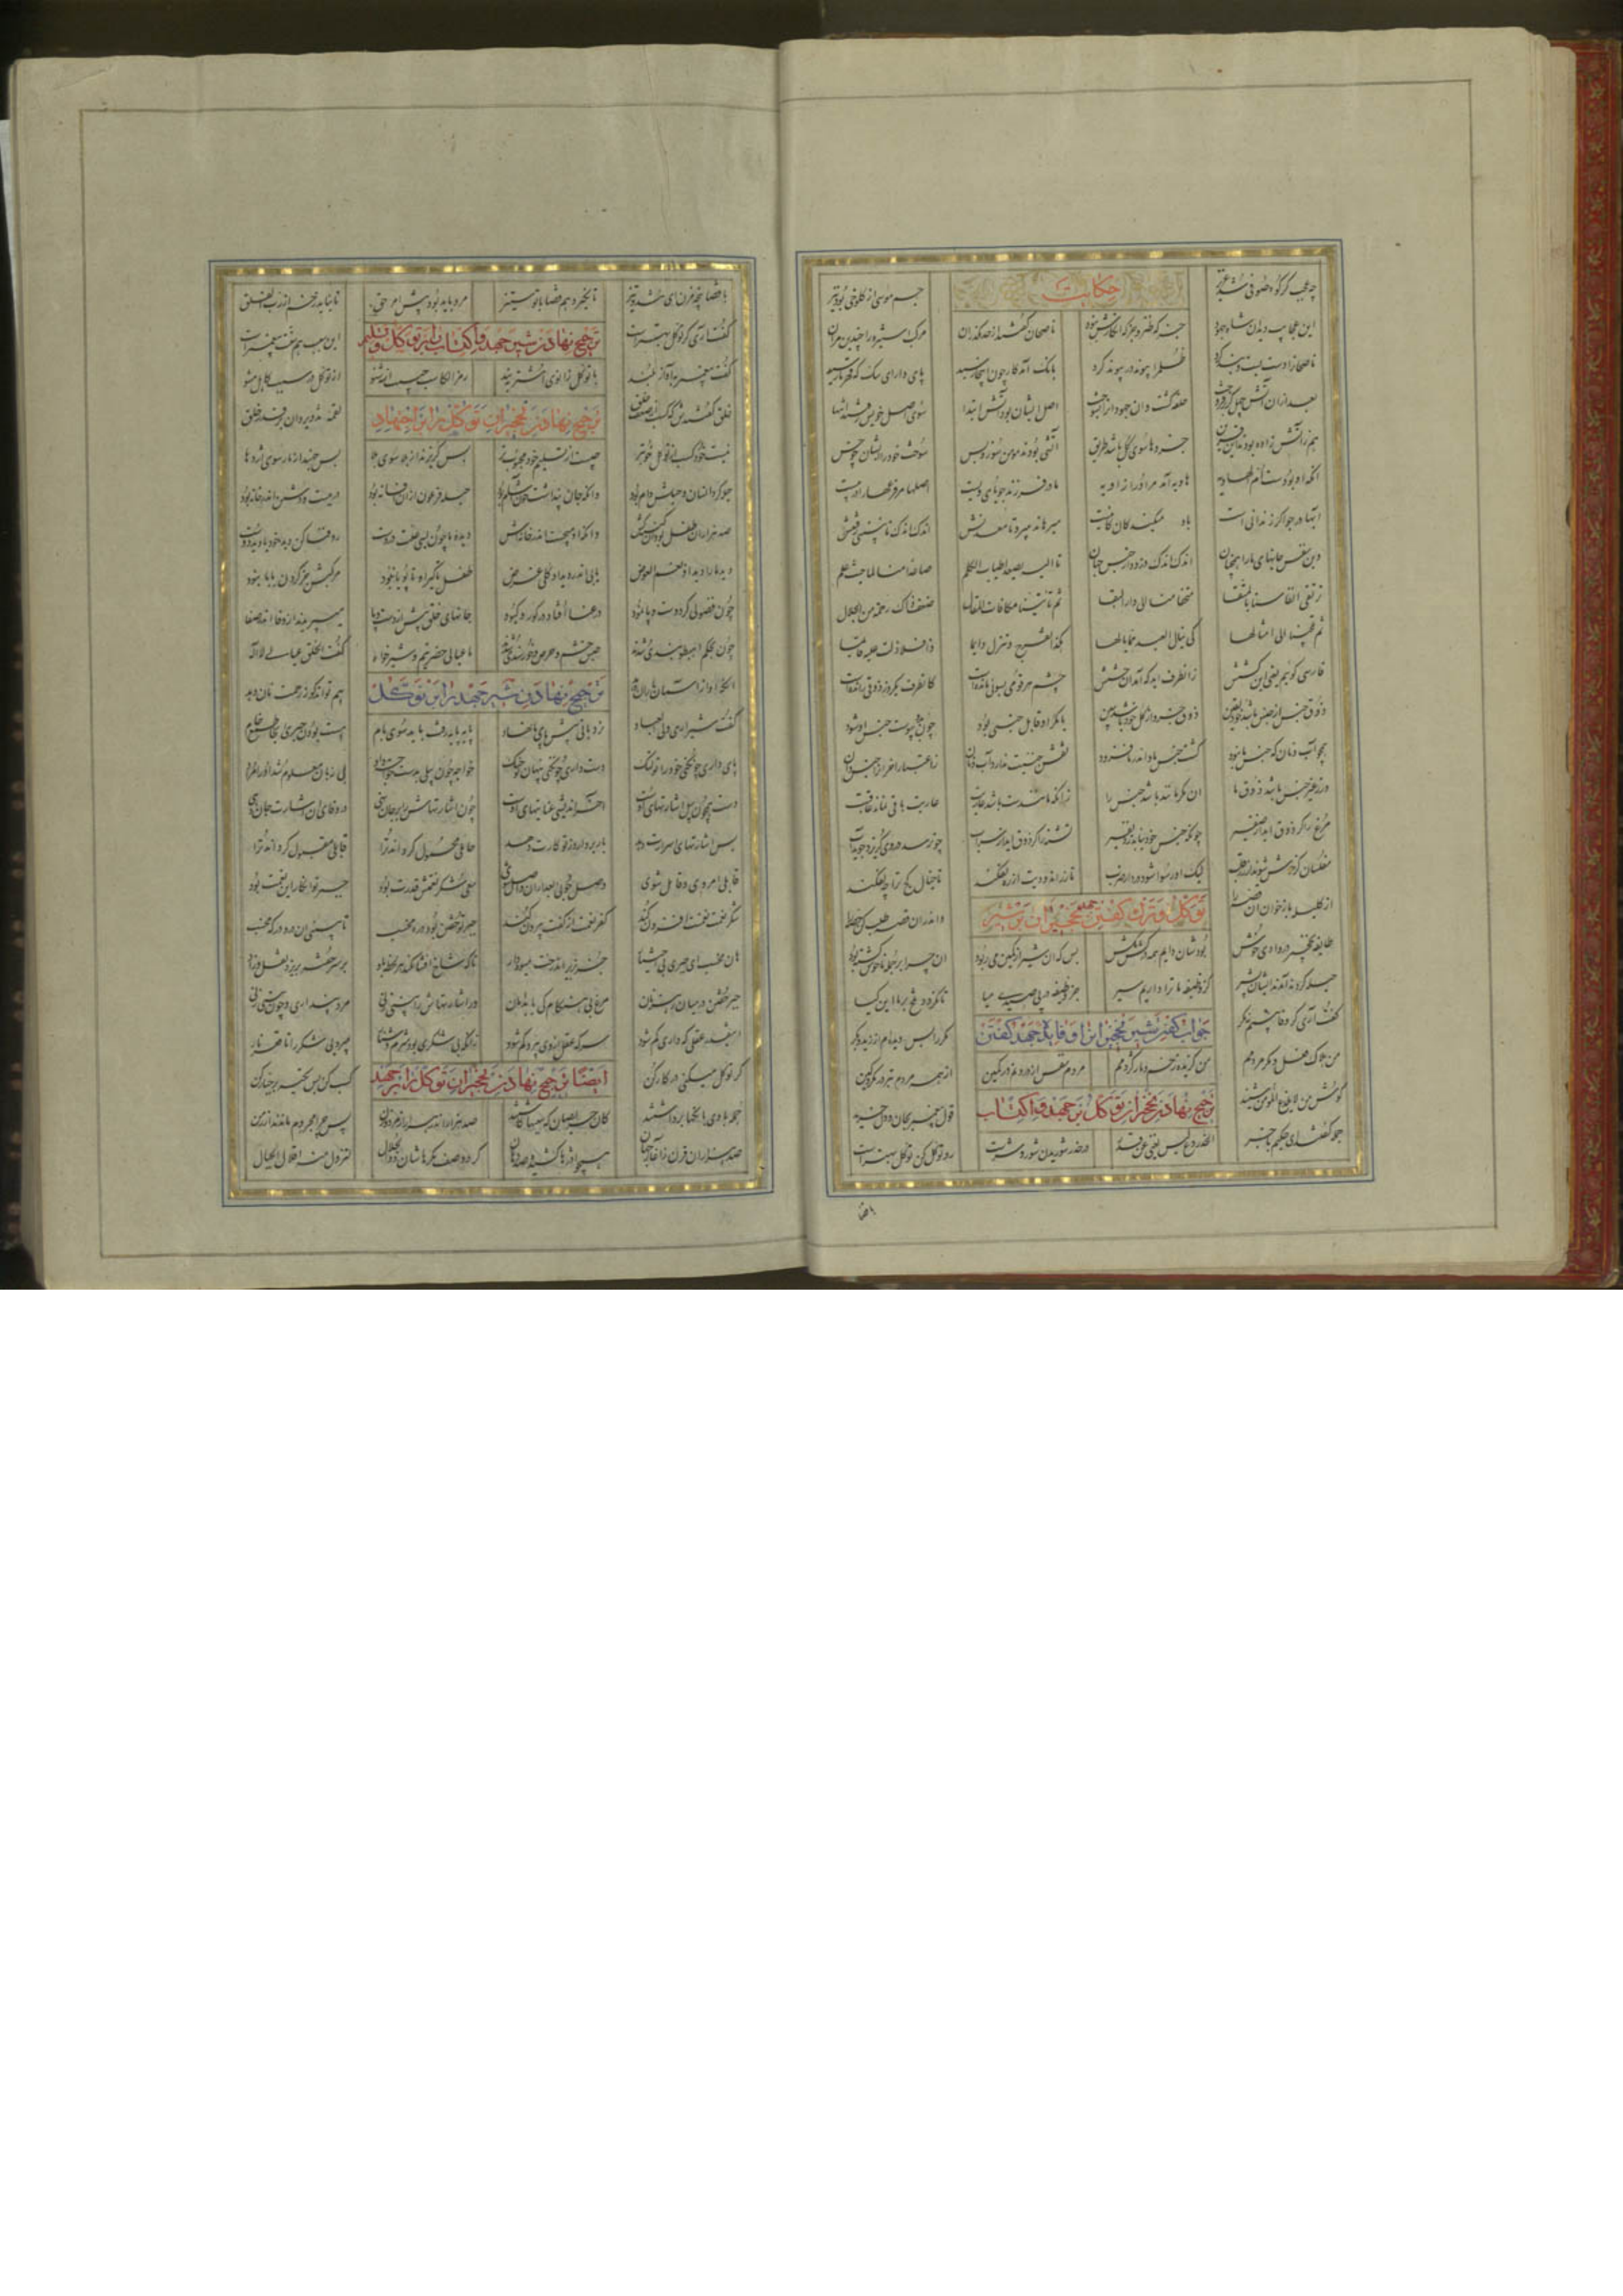 چه عجب گر کوه صوفی شد عزیز | حکایت | جسم موسی از کلوخی بود نیز
این عجایب دید آن شاه جهود | جز که طنز و جز که انکارش نبود | ناصحان گفتند از حد مگذران | مرکب استیزه را چندین مران
ناصحانرا دست بست و بند کرد | ظلم را پیوند در پیوند کرد | بانگ آمد کار چون اینجا رسید | پای دار ای سگ که قهر ما رسید
بعد از آن آتش چهل گز برفروخت | حلقه گشت و آن جهودان را بسوخت | اصل ایشان بود آتش ابتدا | سوی اصل خویش رفتند انتها
هم ز آتش زاده بودند آن فریق | جزوها را سوی کل باشد طریق | آتشی بودند مومن سوز و بس | سوخت خود را آتش ایشان چو خس
آنکه او بودست ام الهاویه | هاویه آمد مر او را زاویه | مادر فرزند جویای ویست | اصلها مر فرعها را در پیست
آبها در حوض اگر زندانی است | باد میکند کارکانیست | میرهاند میبرد تا معدنش | اندک اندک تا نبینی بردنش
وین نفس جانهای ما را همچنان | اندک اندک دزدد از حبس جهان | تا الیه یصعد اطیاب الکلم | صاعدا منا الی حیث علم
ترتقی انفاسنا بالمنتقی | متحفا منا الی دار البقا | ثم تاتینا مکافات المقال | ضعف ذاک رحمة من الجلال
ثم یلجینا الی امثالها | کی ینال العبد مما نالها | هکذا تعرج و تنزل دایما | ذا فلا زلت علیه قایما
فارسی گوییم یعنی این کشش | زانطرف آید که آمد آن چشش | چشم هر قومی بسویی مانده است | کانطرف یکروز ذوقی رانده است
ذوق جنس از جنس باشد خود یقین | ذوق جزو از کل خود باشد ببین | یا مگر او قابل جنسی بود | چون بدو پیوست جنس او شود
همچو آب و نان که جنس ما نبود | گشت جنس ما و اندر ما فزود | نقش جنسیت ندارد آب و نان | ز اعتبار آخر آنرا جنس دان
ور ز غیر جنس باشد ذوق ما | آن مگر مانند باشد جنس را | زانکه مانندست باشد عاریت | عاریت باقی نماند عاقبت
مرغ را گر ذوق آید از صفیر | چونکه جنس خود نیابد شد نفیر | تشنه را گر ذوق آید از سراب | چون رسد در وی گریزد جوید آب
مفلسان گر خوش شوند از زر قلب | لیک او رسوا شود در دار ضرب | تا زر اندودیت از ره نفکند | تا خیال کج ترا چه نفکند
از کلیله باز خوان آن قصه را | توکل و ترک گفتن نخجیران بر شیر | واندر آن قصه طلب کن حصه را
طایفه نخجیر در وادی خوش | بودشان دایم همه در کشمکش | بس که آن شیر از کمین می ربود | آن چرا بر جمله ناخوش گشته بود
حیله کردند آمدند ایشان بشیر | کز وظیفه ما ترا داریم سیر | جز وظیفه در پی صیدی میا | تا نگردد تلخ بر ما این گیا
گفت آری گر وفا بینم نه مکر | جواب گفتن شیر نخجیران را و فایده جهد گفتن | مکرها بس دیده ام از زید و بکر
من هلاک فعل و مکر مردمم | من گزیده زخم مار و کژدمم | مردم نفس از درونم در کمین | از همه مردم بتر در مکر و کین
گوش من لا یلدغ المومن شنید | ترجیح نهادن نخجیران توکل بر جهد و اکتساب | قول پیغمبر بجان و دل گزید
جمله گفتند ای حکیم با خبر | الحذر دع لیس یغنی عن قدر | در حذر شوریدن شور و شرست | رو توکل کن توکل بهترست
با قضا
با قضا پنجه مزن ای تند و تیز | تا نگیرد هم قضا با تو ستیز | مرده باید بود پیش امر حق | تا نیاید زخم از رب الفلق
گفت آری گر توکل بهترست | ترجیح نهادن شیر جهد و اکتساب را بر توکل و تسلیم | این سبب هم سنت پیغمبرست
گفت پیغمبر به آواز بلند | با توکل زانوی اشتر ببند | رمز الکاسب حبیب الله شنو | از توکل در سبب کاهل مشو
خلق گفتندش که کسب از ضعف خلق | ترجیح نهادن نخجیران توکل را بر اجتهاد | لقمه تزویر دان بر قدر حلق
نیست خود کسب از توکل خوبتر | چیست از تسلیم خود محبوبتر | بس گریزند از بلا سوی بلا | بس جهند از مار سوی اژدها
حیله کرد انسان و حیلش دام بود | وانکه جان پنداشت خون آشام بود | حیله فرعون ازین افسانه بود | در ببست و دشمن اندر خانه بود
صد هزاران طفل کشت آن کینه کش | وانکه او میجست اندر خانه اش | دیده ما چون بسی علت دروست | رو فنا کن دید خود با دید دوست
دید ما را دید او نعم العوض | یابی اندر دید او کلی غرض | طفل تا گیرا و تا پویا نبود | مرکبش جز گردن بابا نبود
چون فضولی کرد و دست و پا نمود | در عنا افتاد و در کور و کبود | جانهای خلق پیش از دست و پا | می پریدند از وفا اندر صفا
چون بحکم اهبطوا بندی شدند | حبس خشم و حرص و خورسندی شدند | ما عیال حضرتیم و شیرخواه | گفت الخلق عیال لاله
آنکه او از آسمان باران دهد | ترجیح نهادن شیر جهد را بر توکل | هم تواند کو ز رحمت نان دهد
گفت شیر آری ولی رب العباد | نردبانی پیش پای ما نهاد | پایه پایه رفت باید سوی بام | هست جبری بودن اینجا طمع خام
پای داری چون کنی خود را تو لنگ | دست داری چون کنی پنهان تو چنگ | خواجه چون بیلی بدست بنده داد | بی زبان معلوم شد او را مراد
دست همچون بیل اشارتهای اوست | آخر اندیشی عبارتهای اوست | چون اشارتهاش را بر جان نهی | در وفای آن اشارت جان دهی
پس اشارتهای اسرارت دهد | بار بر دارد ز تو کارت دهد | حاملی محمول گرداند ترا | قابلی مقبول گرداند ترا
قابل امر ویی قابل شوی | وصل جویی بعد از آن واصل شوی | سعی شکر نعمتش قدرت بود | جبر تو انکار این نعمت بود
شکر نعمت نعمتت افزون کند | کفر نعمت از کفت بیرون کند | جبر تو خفتن بود در ره مخسب | تا نبینی آن در و درگه مخسب
هان مخسب ای جبری بی اعتبار | جز بزیر آن درخت میوه دار | تا که شاخ افشان کند هر لحظه باد | بر سر خفته بریزد نقل و زاد
جبر خفتن در میان رهزنان | مرغ بی هنگام کی یابد امان | ور اشارتهاش را بینی زنی | مرد پنداری و چون بینی زنی
اینقدر عقلی که داری گم شود | سر که عقل از وی بپرد دم شود | زانکه بی شکری بود شوم و شنار | میبرد بی شکر را تا قعر نار
گر توکل میکنی در کار کن | ایضا ترجیح نهادن نخجیران توکل را بر جهد | کسب کن پس تکیه بر جبار کن
جمله با وی بانگها برداشتند | کان حریصان که سببها کاشتند | صد هزار اندر هزار از مرد و زن | پس چرا محروم ماندند از زمن
صد هزاران قرن ز آغاز جهان | همچو اژدرها گشاده صد دهان | کرد وصف مکرهاشان ذوالجلال | لتزول منه اقلال الجبال